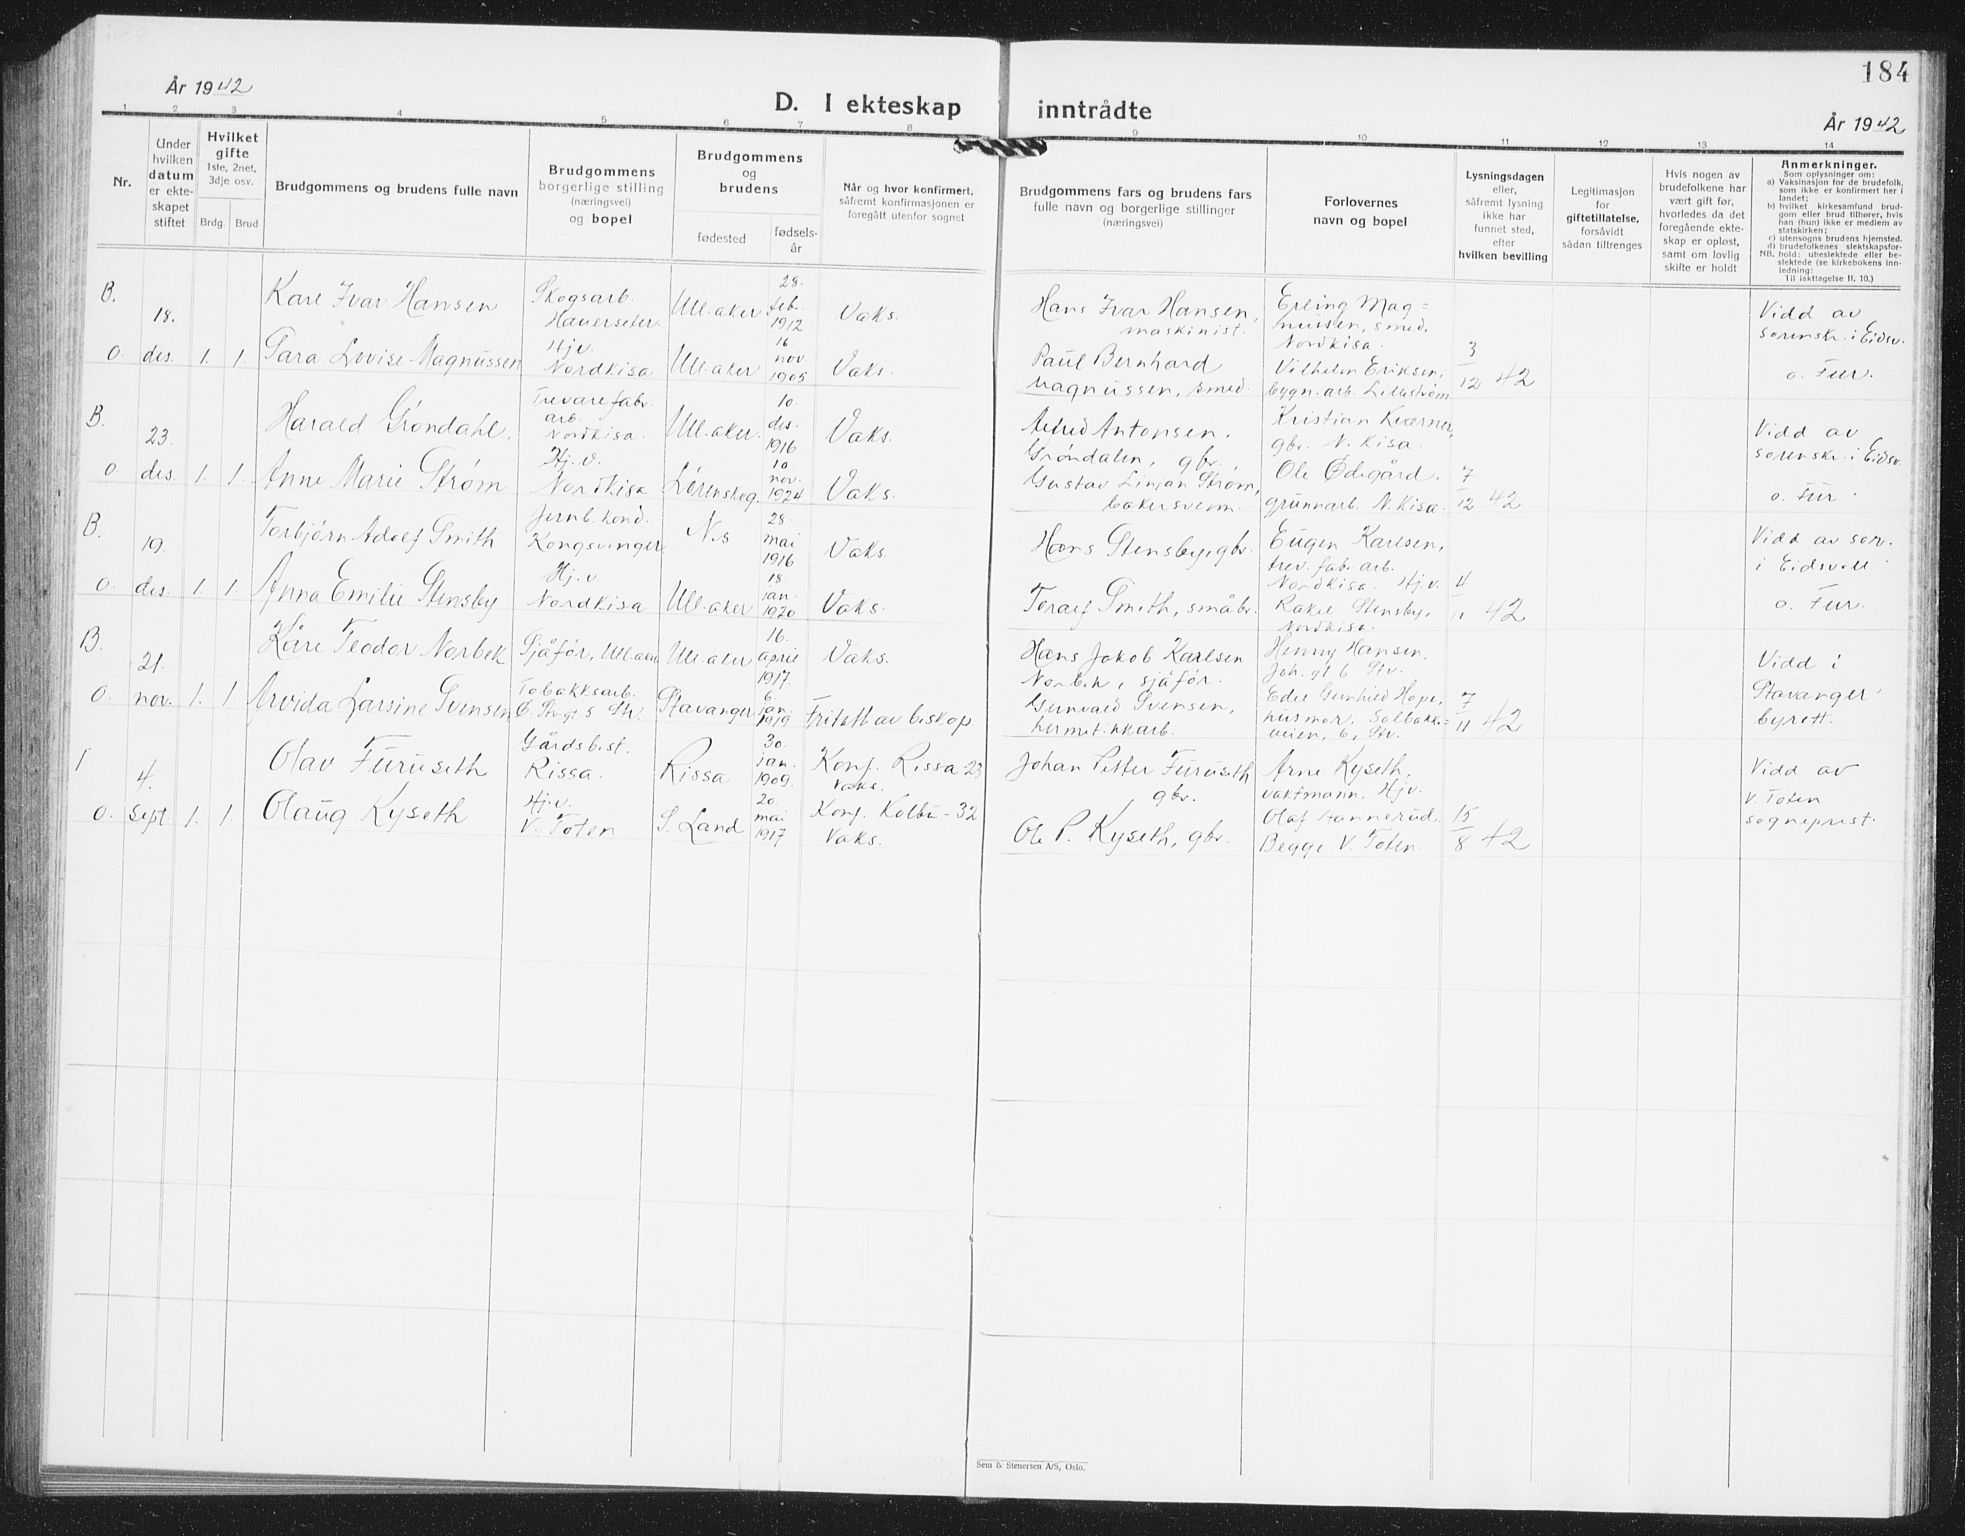 184
År 1942
D. I ekteskap inntrådte
År 1942
1 2 3 4 5 6 7 8 9 10 11 12 13 14
Nr.
Under hvilken datum er ekteskapet stiftet
Hvilket gifte 1ste, 2net, 3dje osv.
Brdg. Brud
Brudgommens og brudens fulle navn
Brudgommens borgerlige stilling (næringsvei) og bopel
Brudgommens og brudens
fødested
fødselsår
Når og hvor konfirmert, såfremt konfirmasjonen er foregått utenfor sognet
Brudgommens fars og brudens fars fulle navn og borgerlige stillinger (næringsvei)
Forlovernes navn og bopel
Lysningsdagen eller, såfremt lysning ikke har funnet sted, efter hvilken bevilling
Legitimasjon for giftetillatelse, forsåvidt sådan tiltrenges
Hvis nogen av brudefolkene har vært gift før, hvorledes da det foregående ekteskap er opløst, samt om lovlig skifte er holdt
Anmerkninger.
Som oplysninger om:
a) Vaksinasjon for de brudefolk, som ikke er konfirmert her i landet;
b) hvilket kirkesamfund brudgom eller brud tilhører, hvis han (hun) ikke er medlem av statskirken;
c) utensogns brudens hjemsted.
d) brudefolkenes slektskapsforhold: ubeslektede eller beslektede (se kirkebokens innledning:
NB. Til iakttagelse II. 10.)
B. 18. Kåre Ivar Hansen Skogsarb. Hauerseter Ull.aker 28. feb. 1912 Vaks. Hans Ivar Hansen, maskinist. Erling Magnussen, smed, Nordkisa. Vidd av sorenskr. i Eidsv.
o. des. 1. 1. Sara Lovise Magnussen Hjv. Nordkisa Ull.aker 16. nov. 1905 Vaks. Paul Bernhard Magnussen, smed. Vilhelm Eriksen, bygn.arb. Lillestrøm 3/12 42 o. Fur.
B. 23. Harald Grøndahl. Trevarefabr. arb. Nordkisa. Ull.aker. 10. des. 1916 Vaks. Alfred Antonsen, Grøndalen, gbr. Kristian Kværner, gbr. N. Kisa. Vidd av sorenskr. i Eidsv.
o. des 1. 1. Anne Marie Strøm Hj.v. Nordkisa Lørenskog. 10. nov. 1924 Vaks. Gustav Strøm, bakersvenn. Ole Ødegård, grunnarb. N. Kisa. 7/12 42 o. Fur.
B. 19. Torbjørn Adolf Smith Jernb. kond. Kongsvinger Nes 28. mai 1916 Vaks. Hans Stensby, gbr. Eugen Karlsen, trev. fabr. arb. Nordkisa. Vidd av sor. i Eidsvoll
o. des. 1. 1. Anna Emilie Stensby Hj.v. Nordkisa Ull.aker 18. jan. 1920 Vaks. Toralf Smith, småbr. Hj.v. Rakel Stensby, Nordkisa. 4/11 42 o. Fur.
B. 21. Kåre Teodor Norbek Sjåfør, Ull.aker Ull.aker 16. april 1917. Vaks. Hans Jakob Karlsen Norbek, sjåfør. Henny Hansen, Joh. gt 6 Stv. Vidd i Stavanger byrett.
o. nov. 1. 1. Arvida Larsine Svensen Tobakksarb. Stavanger 6. jan. 1919 Fritatt av biskop. Gunvald Svensen, hermetikkarb. Gunhild Hope, husmor. Solbakkeveien, 6, Stv. 7/11 42
1 4. Olav Furuseth Gårdsbest. Rissa. Rissa 30. jan. 1909. Konf. Rissa -23 Vaks. Johan Petter Furuseth gbr. Arne Kyseth, vaktmann, Hjv. Vidd av V. Toten sogneprest.
o. Sept. 1. 1. Olaug Kyseth Hj.v. V. Toten S. Land 20. mai 1917 Konf. Kolbu -32 Vaks. Ole P. Kyseth, gbr. Olaf Begge V. Toten. 15/8 42
Sem & Stenersen A/S, Oslo.